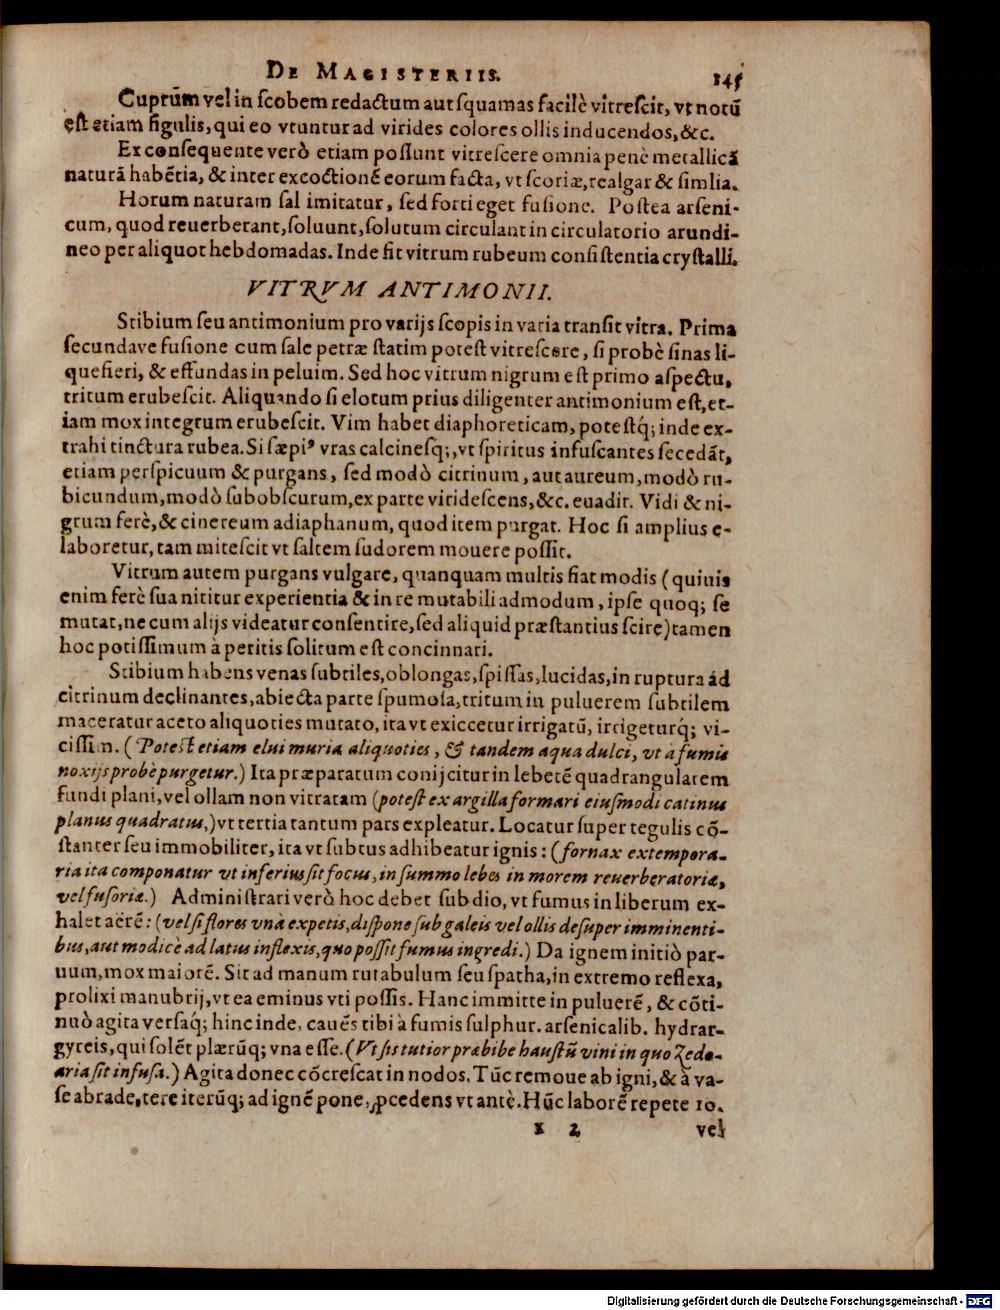 DE MAGISTERIIS. 145
Cuprũm vel in ſcobem redactum aut ſquamas facilè vitreſcit, vt notũ
eſt etiam figulis, qui eo vtuntur ad virides colores ollis inducendos, &c.
Ex conſequente verò etiam poſſunt vitreſcere omnia penè metallicã
naturã habẽtia, & inter excoctionẽ eorum facta, vt ſcoriæ, realgar & ſimlia.
Horum naturam ſal imitatur, ſed forti eget fuſione. Poſtea arſeni-
cum, quod reuerberant, ſoluunt, ſolutum circulant in circulatorio arundi-
neo per aliquot hebdomadas. Inde fit vitrum rubeum conſiſtentia cryſtalli.
VITRVM ANTIMONII.
Stibium ſeu antimonium pro varijs ſcopis in varia tranſit vitra. Prima
ſecundave fuſione cum ſale petræ ſtatim poteſt vitreſcere, ſi probè ſinas li-
quefieri, & effundas in peluim. Sed hoc vitrum nigrum eſt primo aſpectu,
tritum erubeſcit. Aliquando ſi elotum prius diligenter antimonium eſt, et-
iam mox integrum erubeſcit. Vim habet diaphoreticam, poteſtq́; inde ex-
trahi tinctura rubea. Si ſæpiꝰ vras calcineſq́;, vt ſpiritus infuſcantes ſecedãt,
etiam perſpicuum & purgans, ſed modò citrinum, aut aureum, modò ru-
bicundum, modò ſubobſcurum, ex parte virideſcens, &c. euadit. Vidi & ni-
grum ferè, & cinereum adiaphanum, quod item purgat. Hoc ſi amplius e-
laboretur, tam miteſcit vt ſaltem ſudorem mouere poſſit.
Vitrum autem purgans vulgare, quanquam multis fiat modis (quiuis
enim ferè ſua nititur experientia & in re mutabili admodum, ipſe quoq; ſe
mutat, ne cum alijs videatur conſentire, ſed aliquid præſtantius ſcire) tamen
hoc potiſſimum à peritis ſolitum eſt concinnari.
Stibium habens venas ſubtiles, oblongas, ſpiſſas, lucidas, in ruptura ad
citrinum declinantes, abiecta parte ſpumoſa, tritum in puluerem ſubtilem
maceratur aceto aliquoties mutato, ita vt exiccetur irrigatũ, irrigeturq́; vi-
ciſſim. (Poteſt etiam elui muria aliquoties, & tandem aqua dulci, vt a fumis
noxijs probè purgetur.) Ita præparatum conijcitur in lebetẽ quadrangularem
fundi plani, vel ollam non vitratam (poteſt ex argilla formari eiuſmodi catinus
planus quadratus,) vt tertia tantum pars expleatur. Locatur ſuper tegulis cõ-
ſtanter ſeu immobiliter, ita vt ſubtus adhibeatur ignis: (fornax extempora-
ria ita componatur vt inferius ſit focus, in ſummo lebes in morem reuerberatoriæ,
vel fuſoriæ.) Adminiſtrari verò hoc debet ſub dio, vt fumus in liberum ex-
halet aërẽ: (vel ſi flores vnà expetis, diſpone ſub galeis vel ollis deſuper imminenti-
bus, aut modicè ad latus inflexis, quo poſſit fumus ingredi.) Da ignem initiò par-
uum, mox maiorẽ. Sit ad manum rutabulum ſeu ſpatha, in extremo reflexa,
prolixi manubrij, vt ea eminus vti poſſis. Hanc immitte in puluerẽ, & cõti-
nuò agita verſaq́; hinc inde, cauẽs tibi à fumis ſulphur. arſenicalib. hydrar-
gyreis, qui ſolẽt plærũq; vna eſſe. (Vt ſis tutior præbibe hauſtũ vini in quo Zedo-
aria ſit infuſa.) Agita donec cõcreſcat in nodos. Tũc remoue ab igni, & à va-
ſe abrade, tere iterũq; ad ignẽ pone, ꝓcedens vt antè. Hũc laborẽ repete 10.
x 2 vel
Digitalisierung gefördert durch die Deutsche Forschungsgemeinschaft - DFG